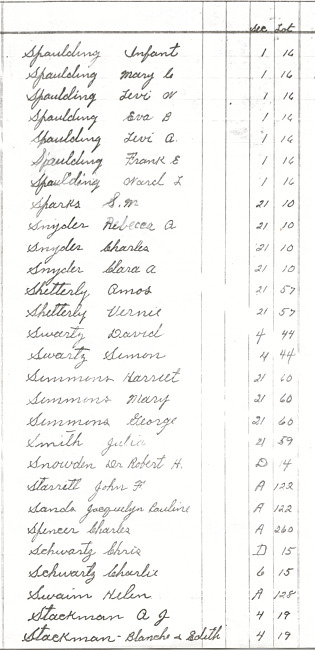 Sec Lot
Spaulding Infant 1 16
Spaulding Mary C 1 16
Spaulding Levi W 1 16
Spaulding Eva B 1 16
Spaulding Levi A. 1 16
Spaulding Frank E 1 16
Spaulding Ward L 1 16
Sparks S. M 21 10
Snyder Rebecca A 21 10
Snyder Charles 21 10
Snyder Clara A 21 10
Shetterly Amos 21 57
Shetterly Vernie 21 57
Swartz David 4 44
Swartz Simon 4 44
Simmons Harriet 21 60
Simmons Mary 21 60
Simmons George 21 60
Smith Julia 21 59
Snowden Dr Robert H. D 4
Starrett John F A 122
Sands Jacquelyn Pauline A 122
Spencer Charles A 260
Schwartz Chris D 15
Schwartz Charlie 6 15
Swaim Helen A 128
Stackman A J 4 19
Stackman - Blanche & Edith 4 19